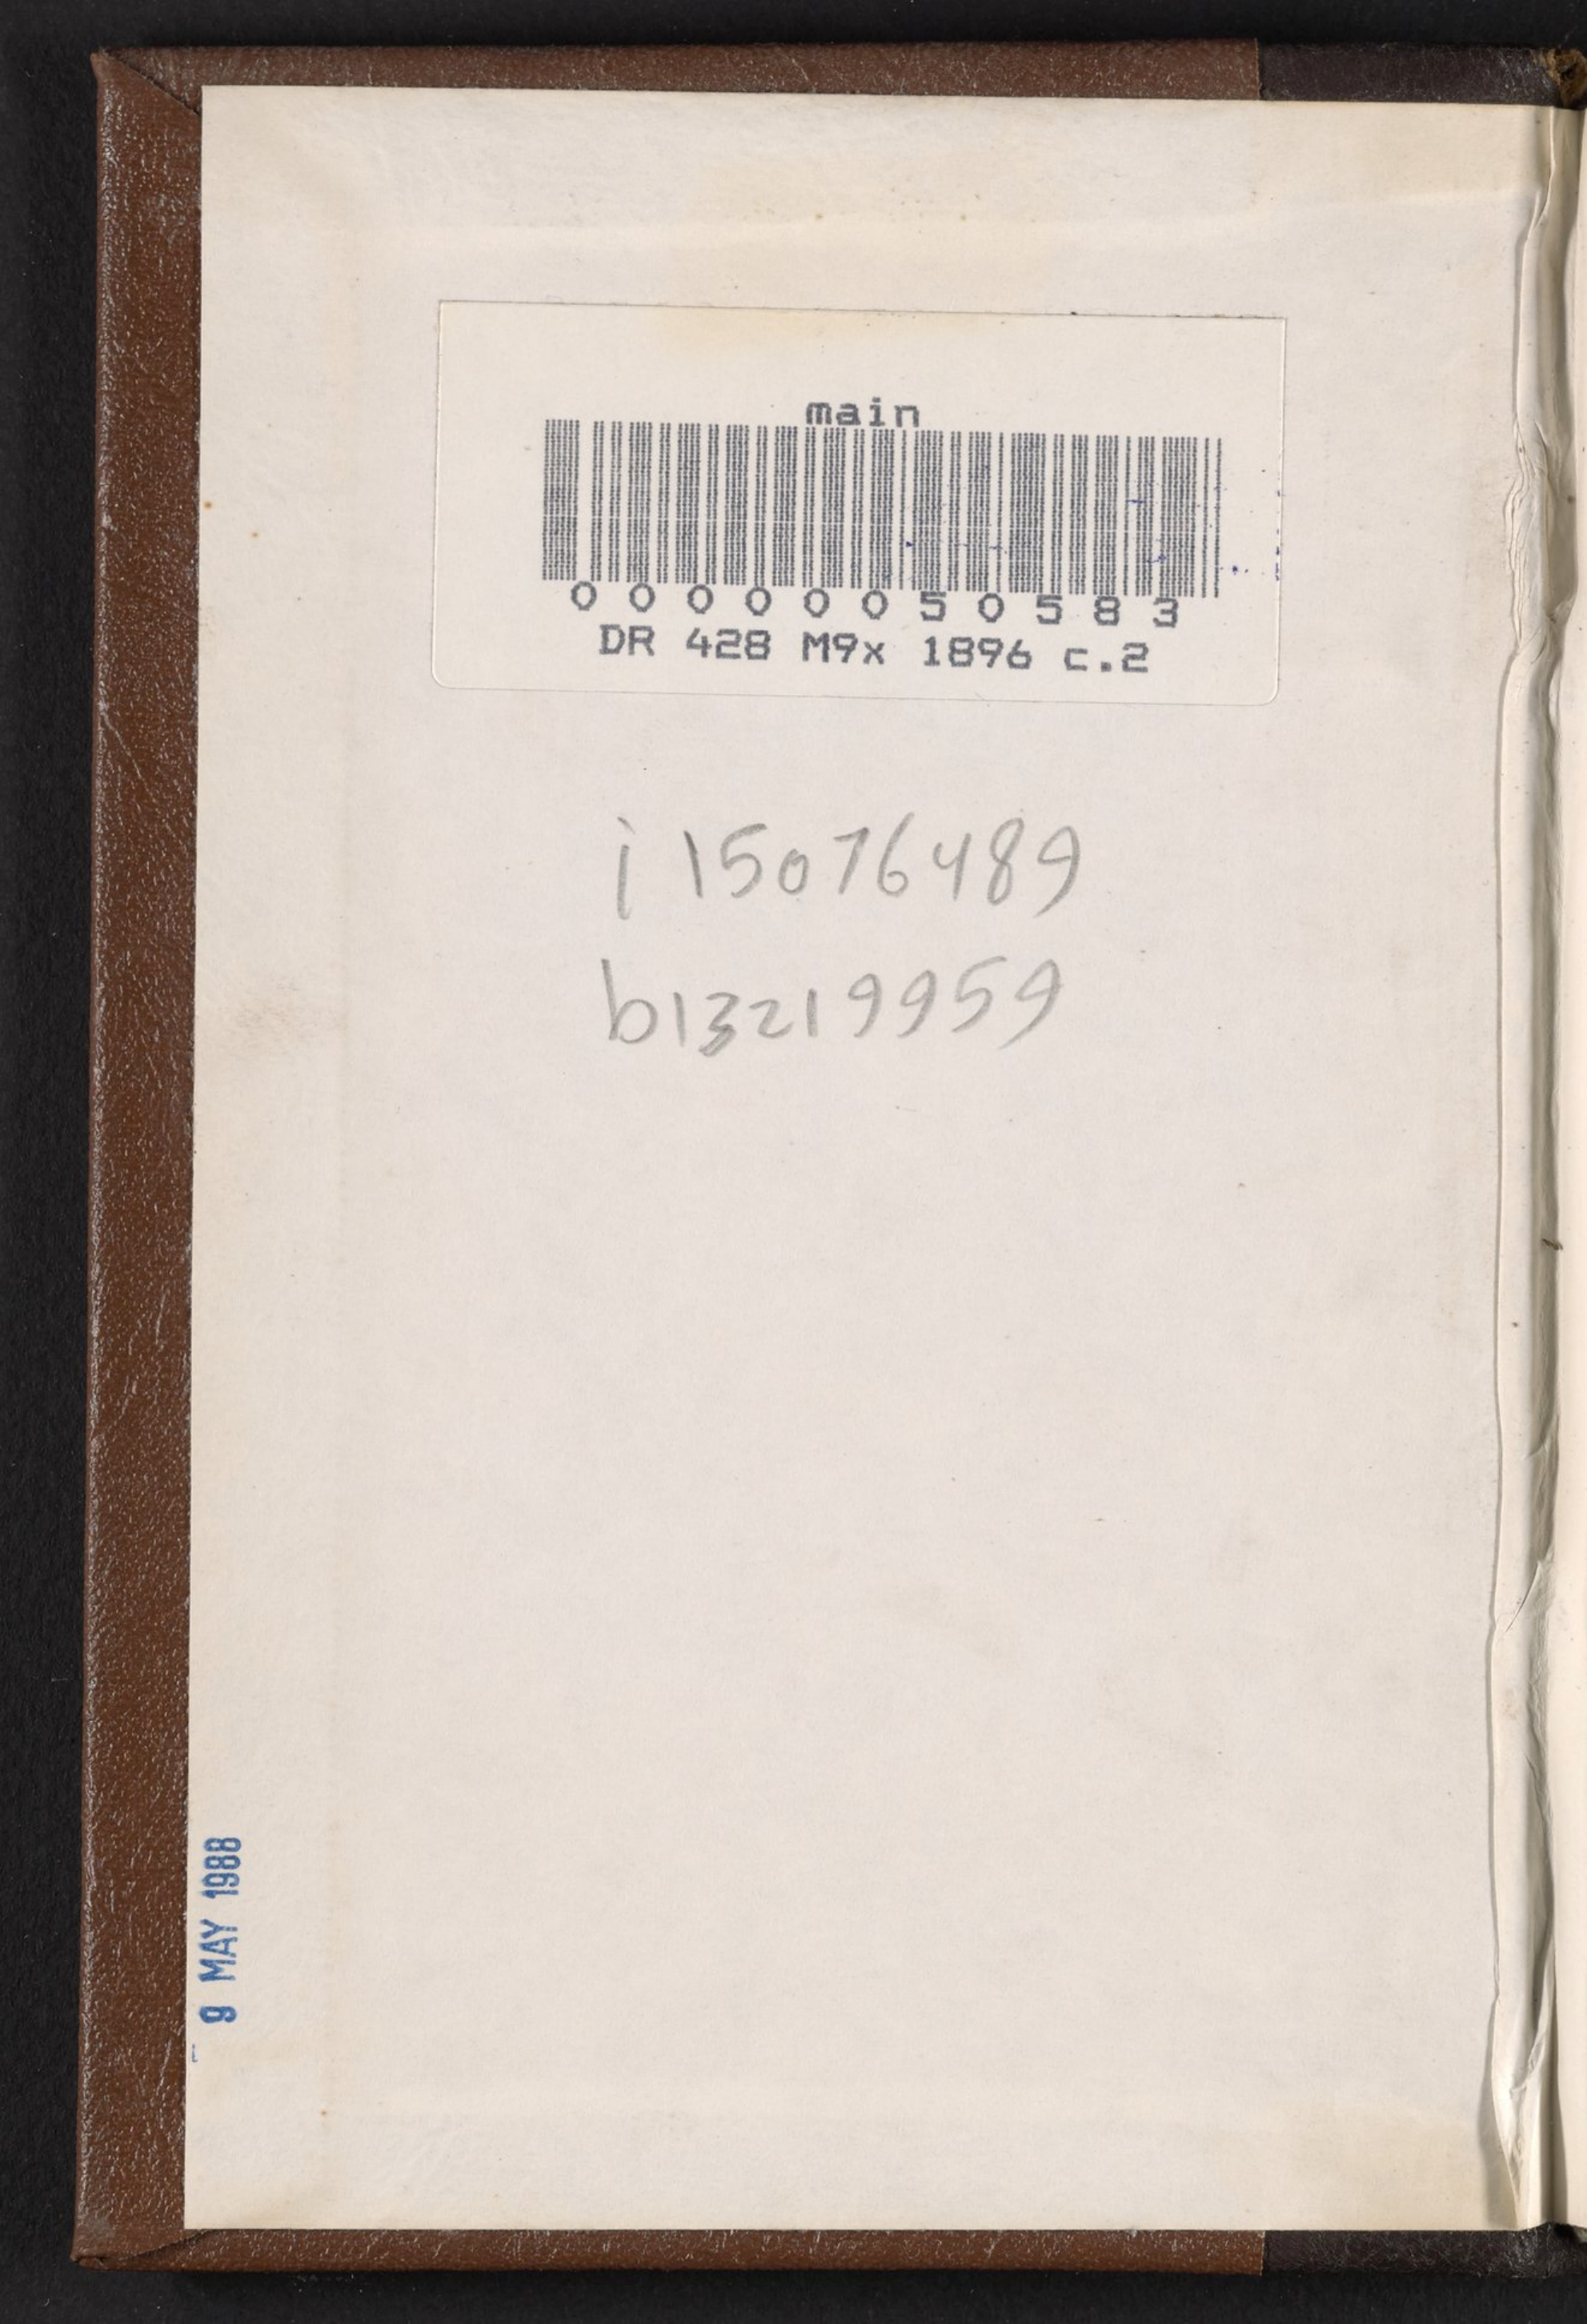 main
00000050583
DR 428 M9x 1896 c.2
i 15076489
b13219959
9 MAY 1988